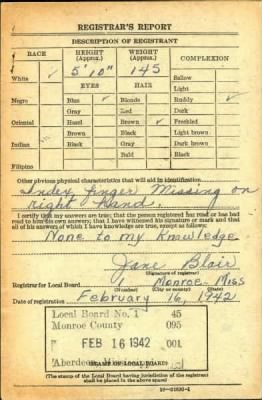 REGISTRAR'S REPORT
DESCRIPTION OF REGISTRANT
RACE HEIGHT (Approx.) WEIGHT (Approx.) COMPLEXION
White ✓ 5' 10" 145 Sallow
EYES HAIR Light
Negro Blue ✓ Blonde Ruddy ✓
Gray Red Dark
Oriental Hazel Brown ✓ Freckled
Brown Black Light brown
Indian Black Gray Dark brown
Bald Black
Filipino
Other obvious physical characteristics that will aid in identification
Index finger Missing on
right hand.
I certify that my answers are true; that the person registered has read or has had
read to him his own answers; that I have witnessed his signature or mark and that
all of his answers of which I have knowledge are true, except as follows:
None to my Knowledge
Jane Blair
(Signature of registrar)
Registrar for Local Board Monroe Miss
(Number) (City or county) (State)
Date of registration February 16, 1942
Local Board No. 1 45
Monroe County 095
FEB 16 1942 001
Aberdeen
STAMP OF LOCAL BOARD
(The stamp of the Local Board having jurisdiction of the registrant
shall be placed in the above space)